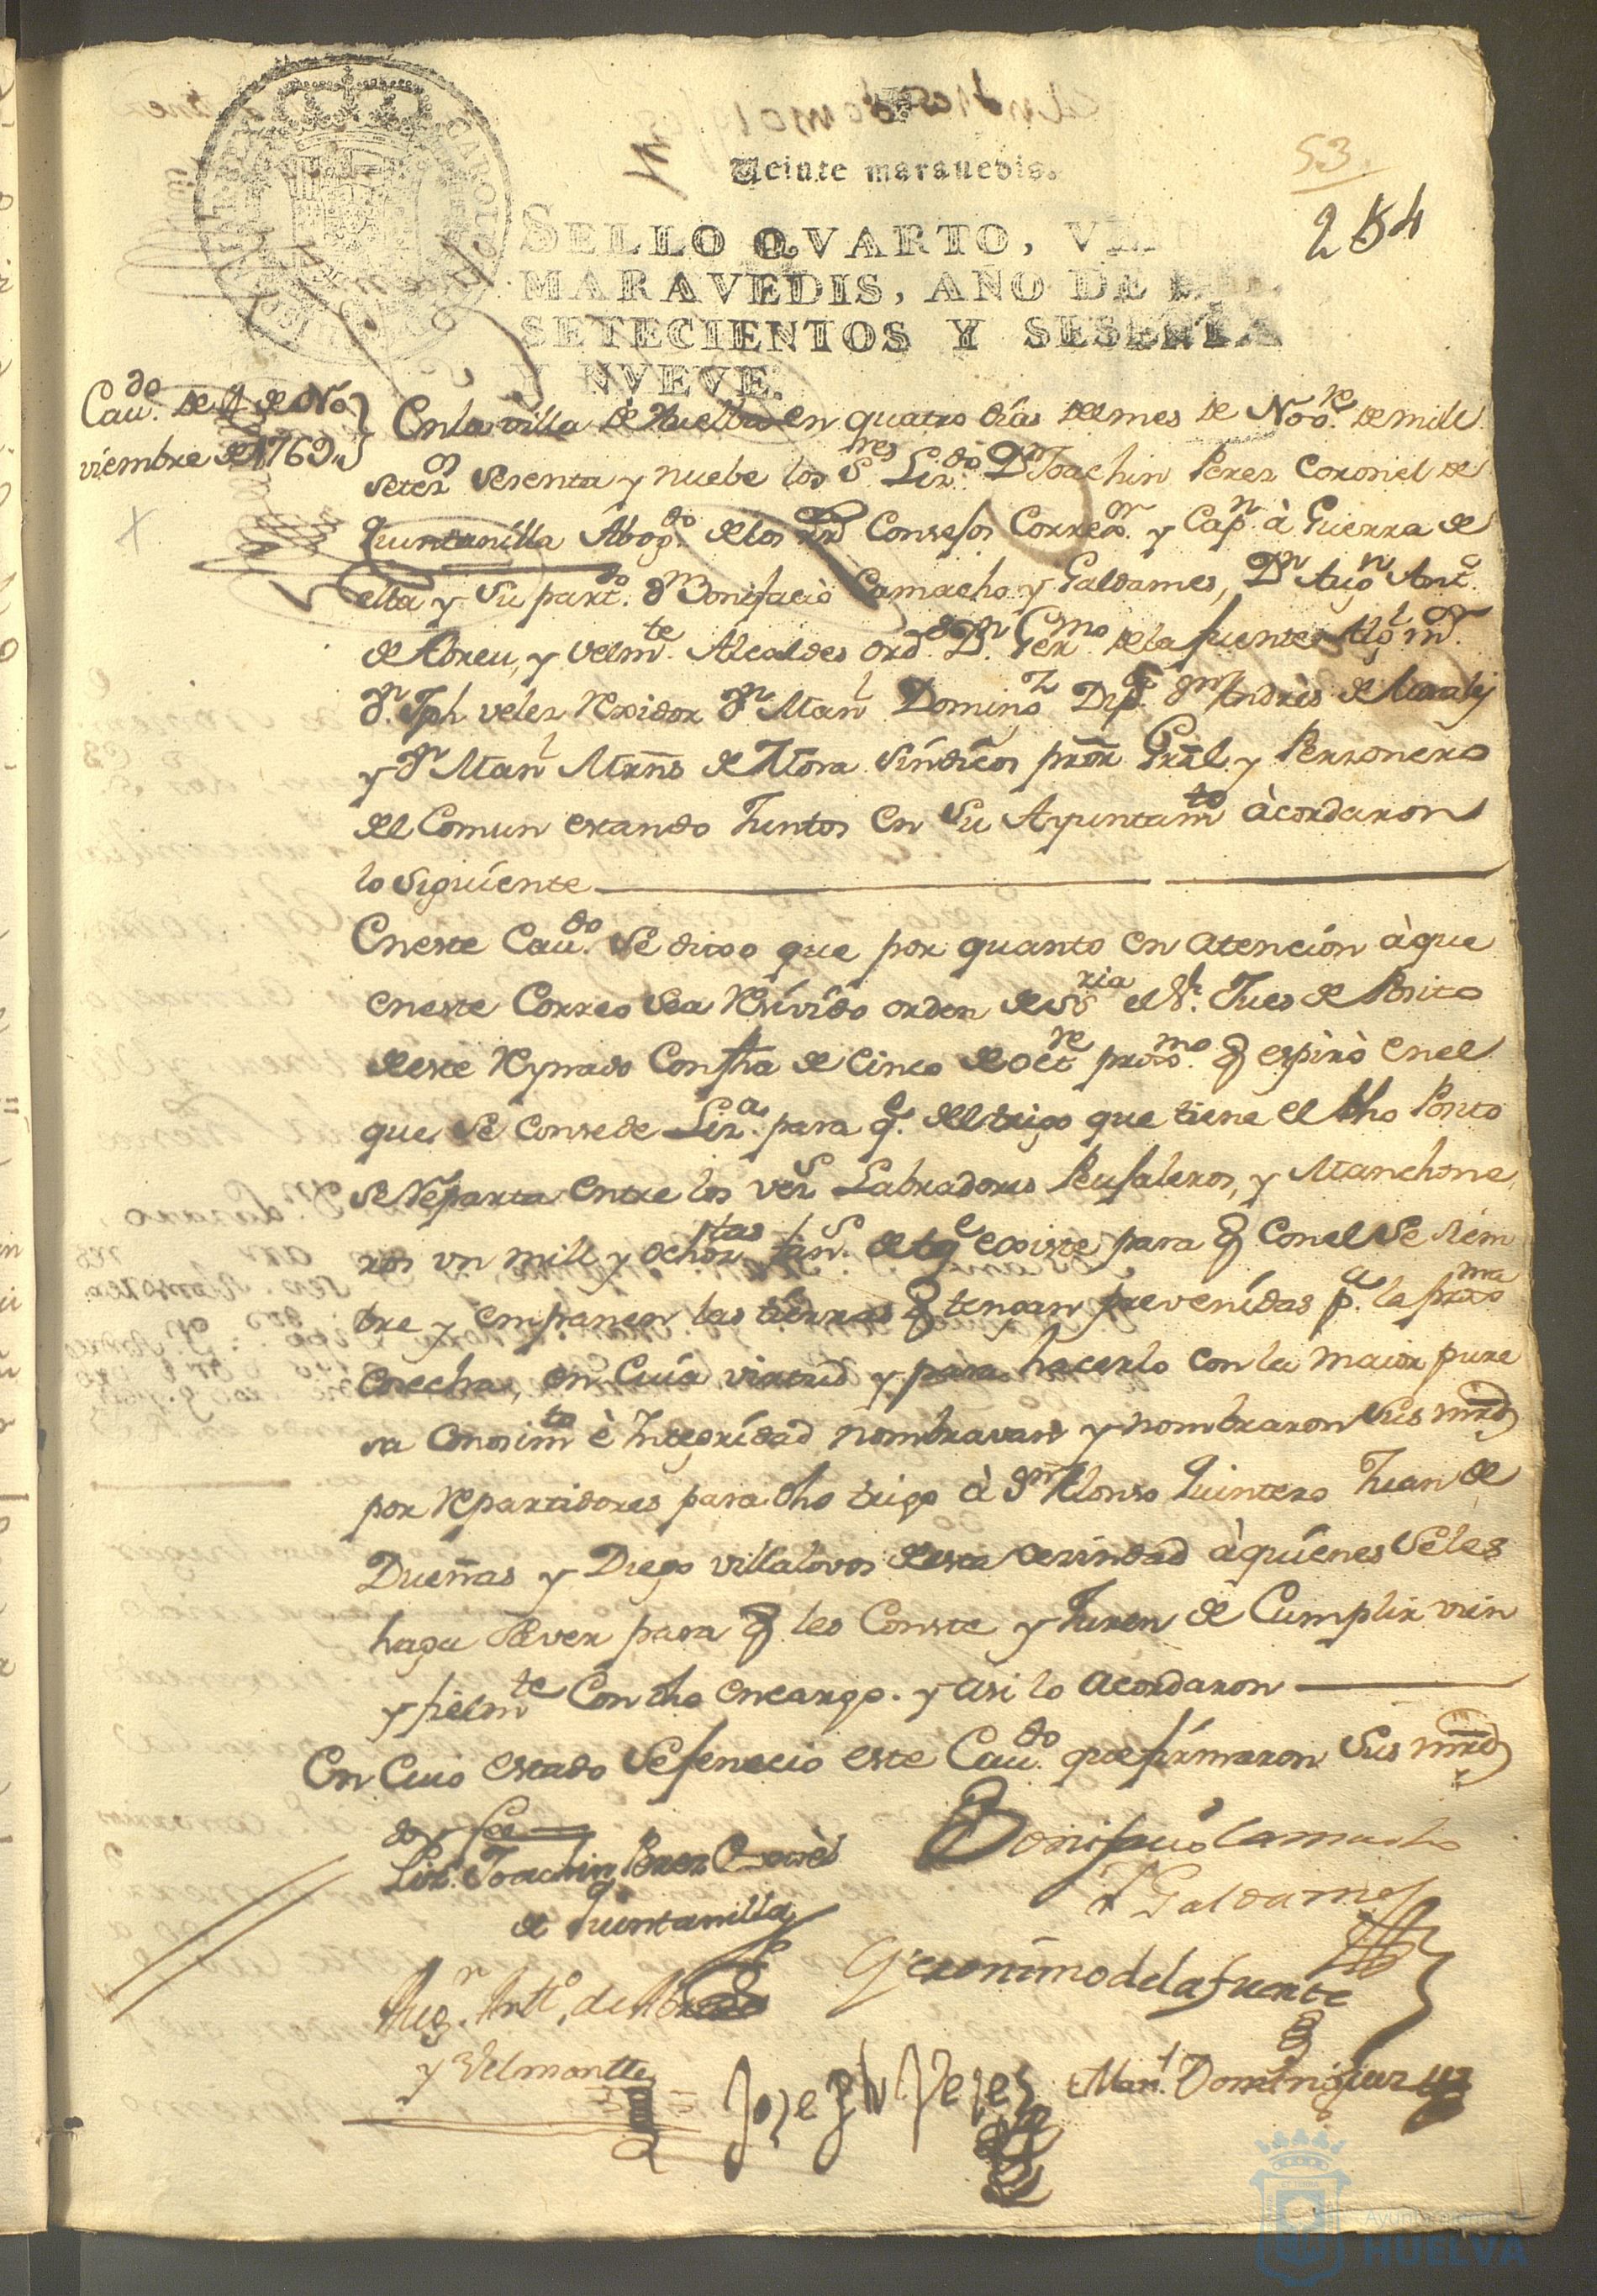 Veinte maravedis.
53.
254
SELLO QVARTO, V
MARAVEDIS, AÑO DE
SETECIENTOS Y SESENTA
Y NVEVE.
Cauᵈᵒ. de 4 de No
viembre de 1769.
En la villa de Huelba en quatro dias del mes de Novʳᵉ. de mill
Seteˢ Sesenta y nuebe los Sʳᵉˢ Lizᵈᵒ. Dⁿ Joachin Perez Coronel de
Quintanilla Abogᵈᵒ. de los Rˢ Consejos Corregᵒʳ. y Capⁿ. à Guerra de
ella y Su partᵈᵒ. Dⁿ Bonifacio Camacho y Galdames, Dⁿ Augⁿ Antᵒ.
de Abreu, y Velmᵗᵉ. Alcaldes ordᵒˢ Dⁿ. Germᵒ de la fuente Algˡ mᵒʳ.
Dⁿ. Jph velez Rexidor Dⁿ Manˡ Domingᶻ Dipᵒ Dⁿ Andrès de
y Dⁿ Manˡ Mrñs de Mora Síndicos prōr Grāl y Personero
del Comun estando Juntos en Su Ayuntamᵗᵒ àcordaron
lo Siguíente
En este Cauᵈᵒ. Se dixo que por quanto en atencíon àque
en este Correo Sea Resívído orden de Sʳⁱᵃ el Sʳ. Jues de Posito
de este Reynado Con fha de Cinco de Octʳᵉ proxᵐᵒ q espirò en el
que Se Consede Lizᵃ. para qᵉ. del trigo que tiene el dho Posito
Se Reparta entre los vezˢ Labradores Peujaleros, y Manchone
ros un mill y ochozᵗᵃˢ fanˢ. de tgᵒ existe para q Con el Se Siem
bre y empanen las tierras q tengan prevenídas pᵃ. la proxᵐᵃ
Cosecha, en Cuía virtud y para hacerlo con la maior pure
sa Conosimᵗᵒ è Integrídad nombravan y nombraron Sus mrds
por Repartidores para dho trigo à Dⁿ Alonso Quintero Juan de
Dueñas y Diego villalovos de esta vesindad àquíenes Seles
haga Saver para q les Conste y Juren de Cumplir vien
y fielmᵗᵉ Con dho encargo. y asi lo acordaron
En Cuio estado Se fenecio este Cauᵈᵒ. que firmaron Sus mrds
doy fee
Lizᵈᵒ. Joachin Perez Coronel
de Quintanilla
Bonifacio Camacho
y Galdames
Augⁿ. Anttᵒ. de Abreu
y Velmontte
Geronimo de la fuente
Joseph Velez
Manˡ. Dominguez
Ayuntamiento de
HUELVA